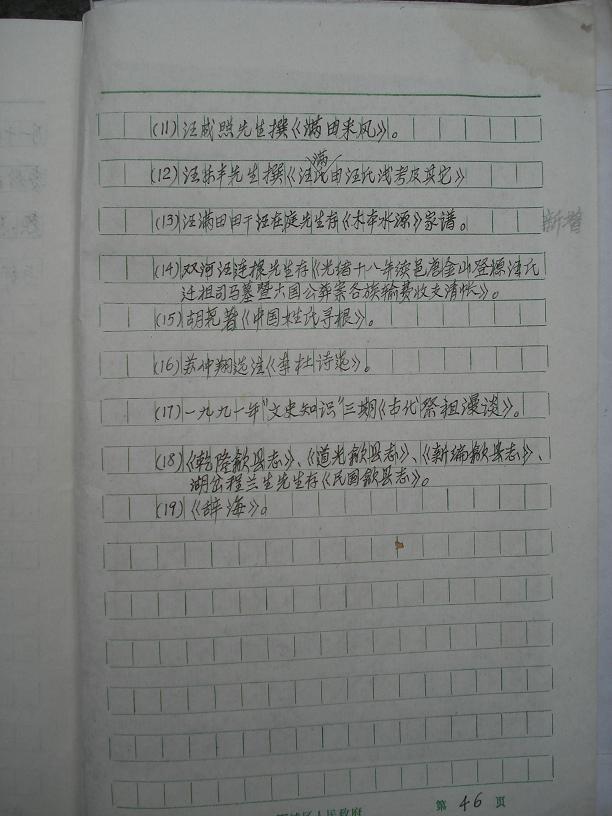 (11)汪威照先生撰《满田采风》。
满
(12)汪芥丰先生撰《汪氏由汪氏浅考及其它》
(13)汪满田由干汪在庭先生存《木本水源》家谱。
新增
(14)双河汪连根先生存《光绪十八年续邑唐金山登源汪氏
迁祖司马墓暨六国公葬案各族输费收支清帐》。
(15)胡尧著《中国姓氏寻根》。
(16)苏仲翔选注《李杜诗选》。
(17)一九九一年"文史知识"三期《古代祭祖漫谈》。
(18)《乾隆歙县志》、《道光歙县志》、《新编歙县志》、
湖岔程兰生先生存《民国歙县志》。
(19)《辞海》。
区人民政府
第 46 页